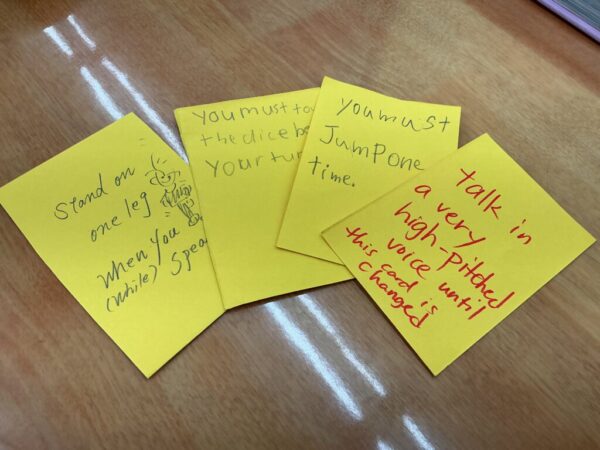 Stand on
one leg
when you
(while) spea
you must to
the dice be
your tur
you must
Jump one
time.
talk in
a very
high-pitched
voice until
this card is
changed